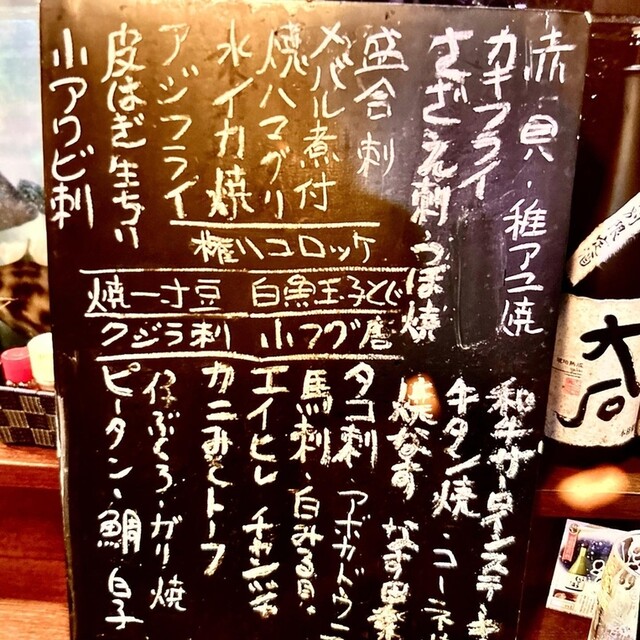 赤貝・稚アユ焼
カキフライ
さざえ刺・つぼ焼
盛合刺
メバル煮付
焼ハマグリ
水イカ焼
アジフライ
皮はぎ生ちり
小アワビ刺
権八コロッケ
焼一寸豆 白魚玉子とじ
クジラ刺 小フグ唐
和牛サーロインステーキ
牛タン焼・コーン
焼なす なす田楽
タコ刺・アボカドウニ
馬刺・白みる貝
エイヒレ チャンジャ
カニみそトーフ
仔ぶくろ・ガリ焼
ピータン・鯛白子